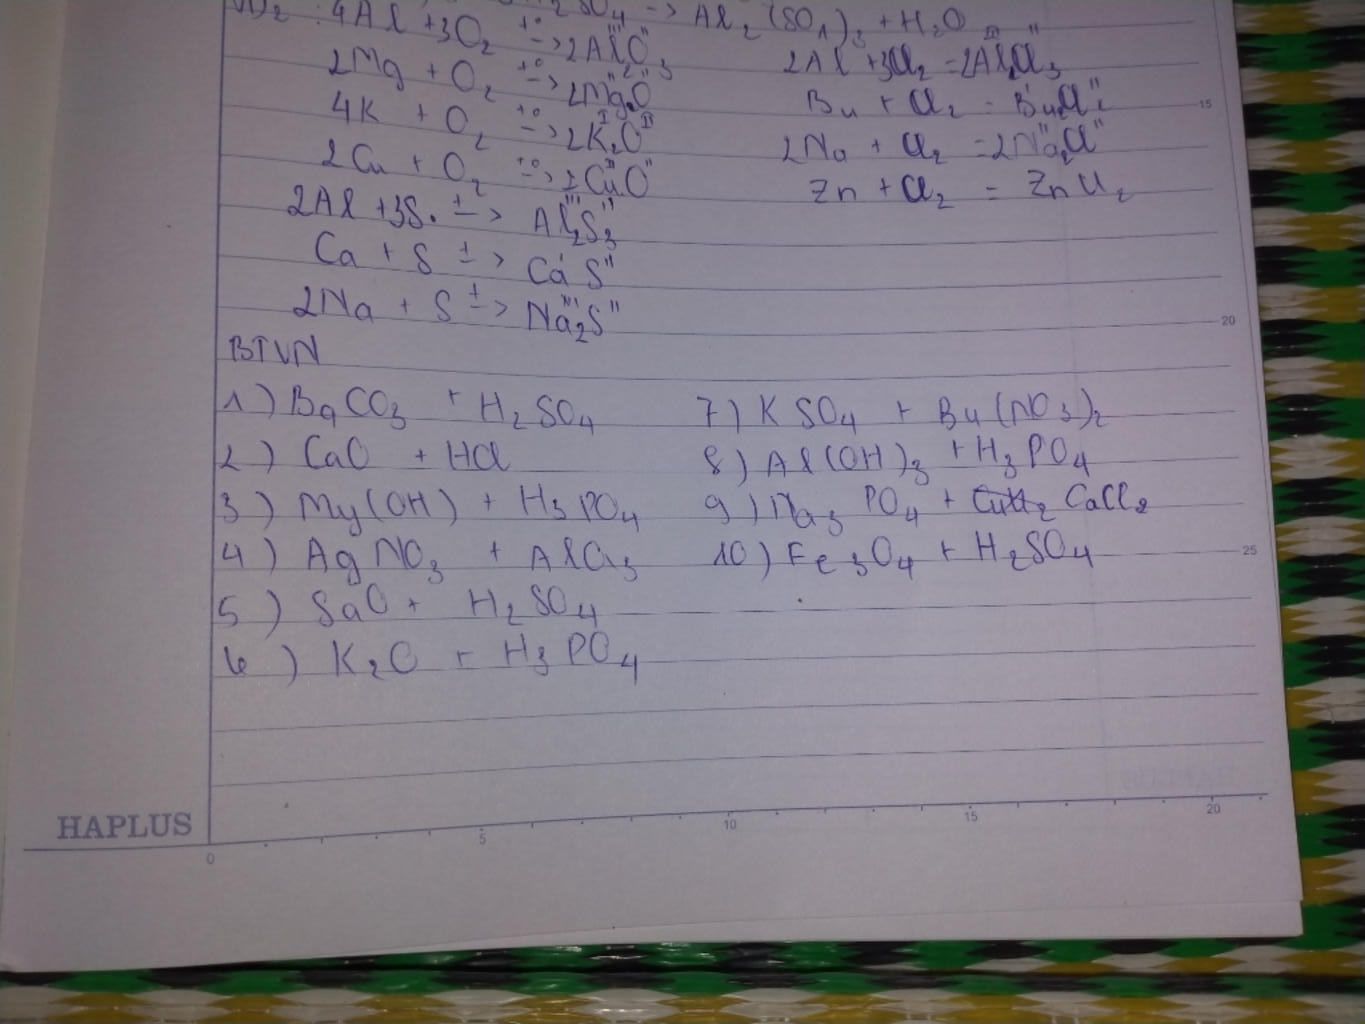 VD2: 4Al + 3O2 t°-> 2Al2O3
H2SO4 -> Al2(SO4)3 + H2O
2Mg + O2 t°-> 2MgO
4K + O2 t°-> 2K2O
2Cu + O2 t°-> 2CuO
2Al + 3S t-> Al2S3
Ca + S t-> CaS
2Na + S t-> Na2S
2Al + 3Cl2 = 2AlCl3
Ba + Cl2 = BaCl2
2Na + Cl2 = 2Na2Cl
Zn + Cl2 = ZnCl2
BTVN
1) BaCO3 + H2SO4
2) CaO + HCl
3) Mg(OH) + H3PO4
4) AgNO3 + AlCl3
5) SaO + H2SO4
6) K2O + H3PO4
7) KSO4 + Ba(NO3)2
8) Al(OH)3 + H3PO4
9) Na3PO4 + CaCl2
10) Fe3O4 + H2SO4
15
20
25
HAPLUS
0 5 10 15 20